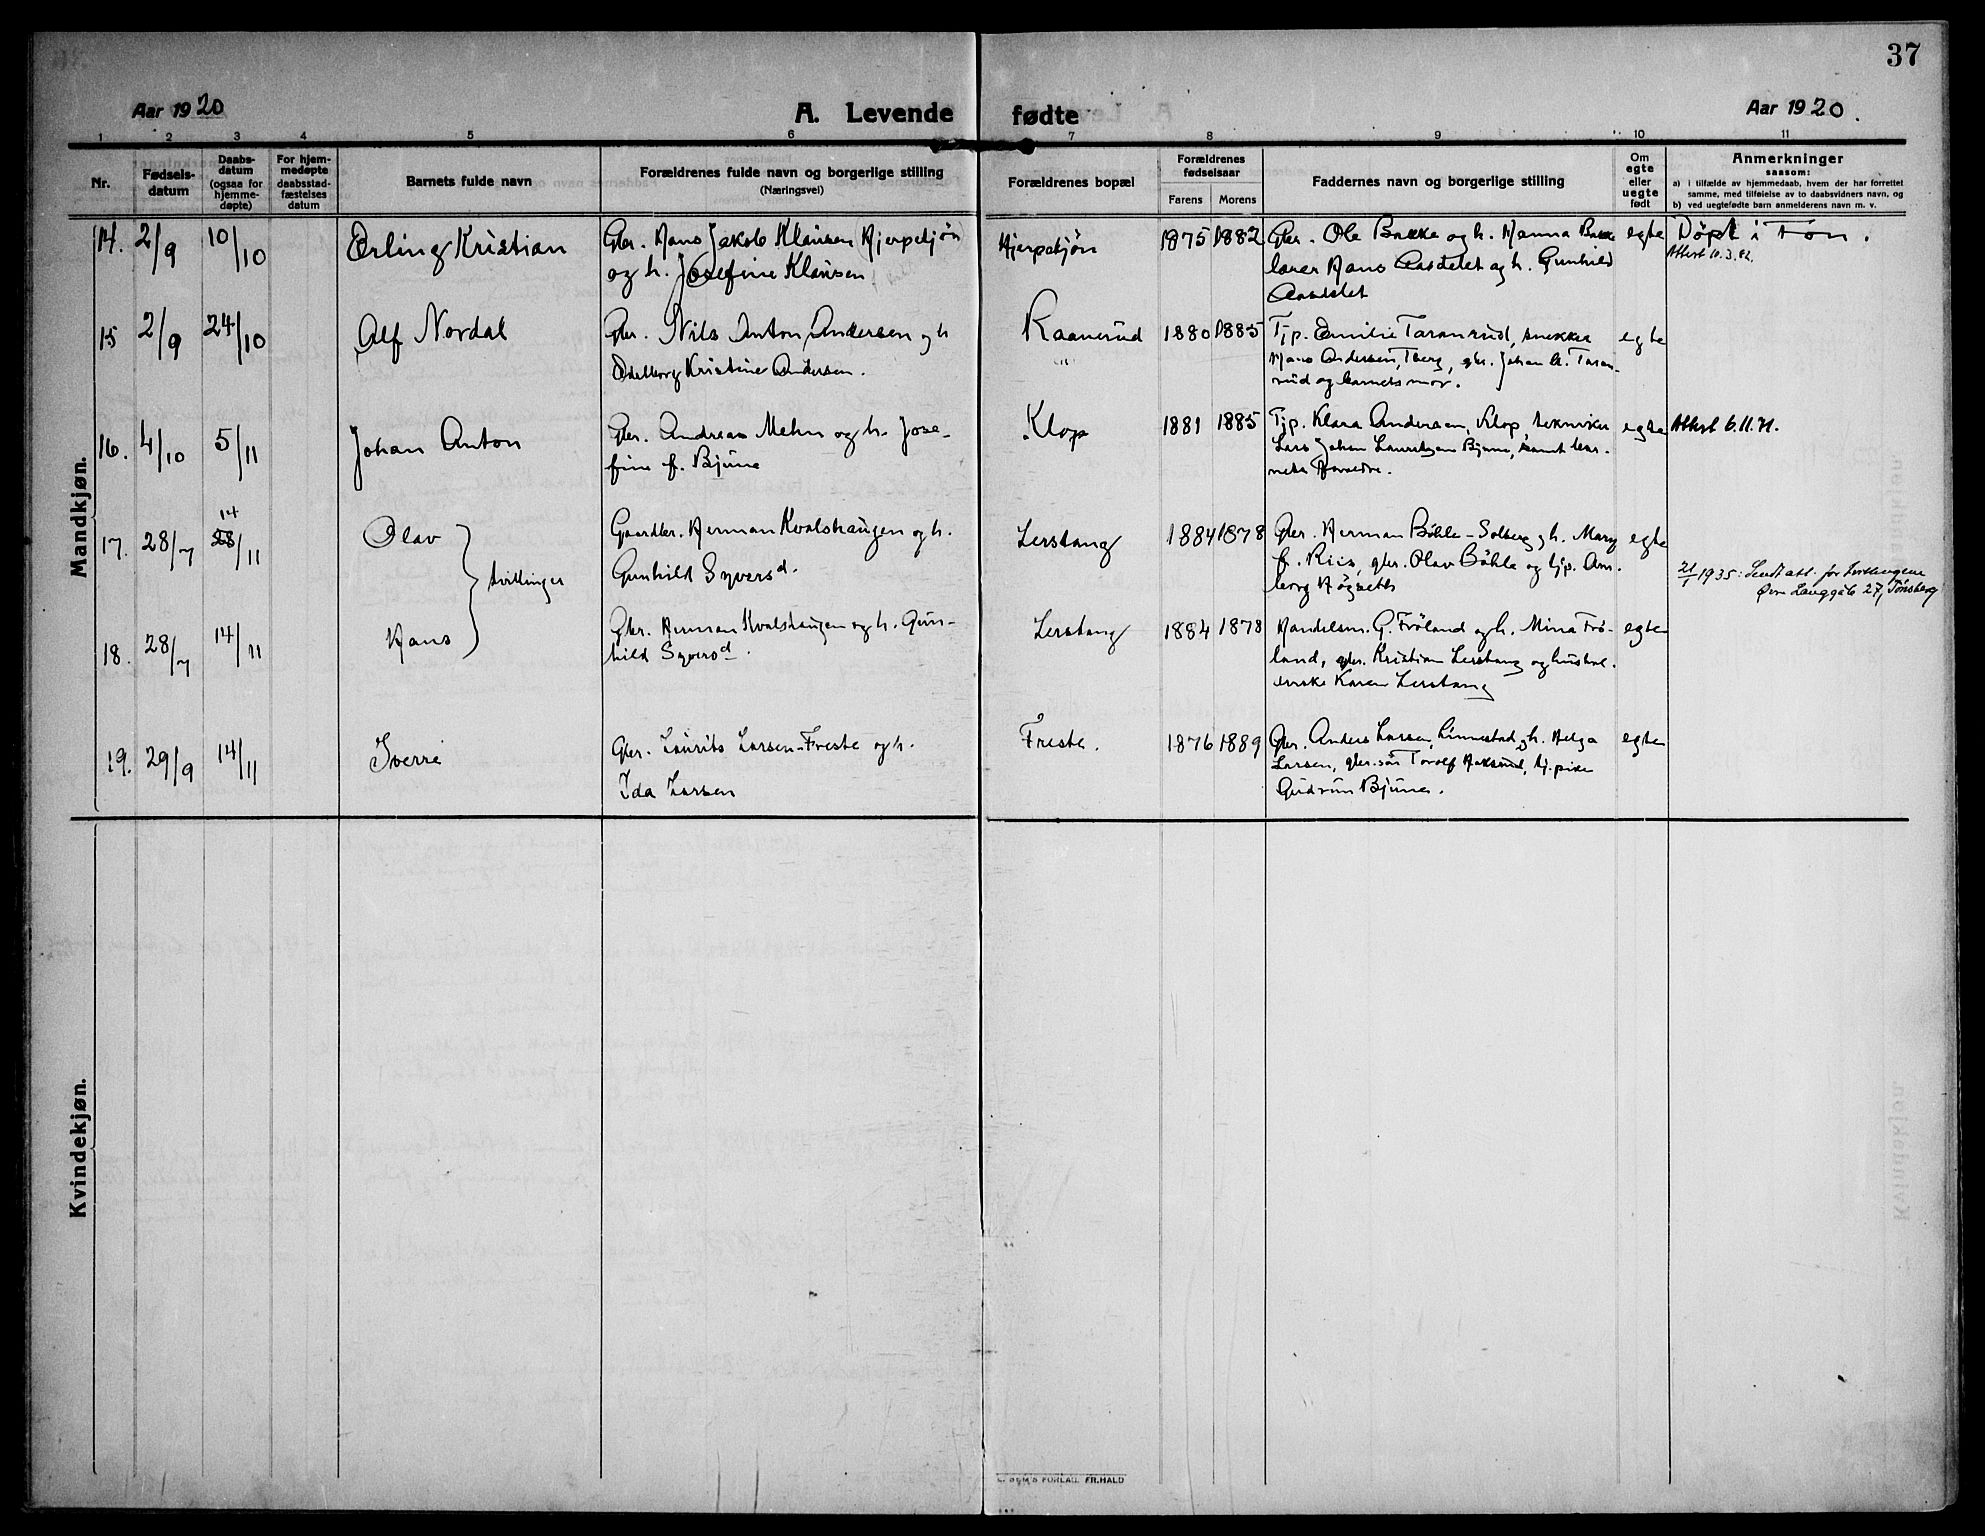 37
Aar 1920
A. Levende
fødte
Aar 1920.
1 2 3 4 5 6 7 8 9 10 11
Nr.
Fødsels-
datum
Daabs-
datum
(ogsaa for
hjemme-
døpte)
For hjem-
medøpte
daabsstad-
fæstelses
datum
Barnets fulde navn
Forældrenes fulde navn og borgerlige stilling
(Næringsvei)
Forældrenes bopæl
Forældrenes
fødselsaar
Farens Morens
Faddernes navn og borgerlige stilling
Om
egte
eller
uegte
født
Anmerkninger
saasom:
a) i tilfælde av hjemmedaab, hvem der har forrettet
samme, med tilføielse av to daabsvidners navn, og
b) ved uegtefødte barn anmelderens navn m. v.
Mandkjøn.
14. 2/9 10/10 Erling Kristian
Gbr. Hans Jakob Klausen Hjerpetjøn
og h. Josefine Klausen
Hjerpetjøn 1875 1882
Gbr. Ole Bakke og h. Hanna Bakke
lærer Hans Aasdelet og h. Gunhild
Aasdelet
egte
Døpt i Fon.
Attest 10.3.82.
15 2/9 24/10 Alf Nordal
Gbr. Nils Anton Andersen og h
Kristine Andersen.
Raanerud 1880 1885
Tjp. Emilie Taranrud, snekker
Hans Andersen, Tberg, gbr. Johan A. Taran-
rud og barnets mor.
egte
16. 4/10 5/11 Johan Anton
Gbr. Andreas Mehn og h. Jose-
fine f. Bjune
Klop 1881 1885
Tjp. Klara Andersen, Klop, tekniker
Lars Johan Lauritsen Bjune, samt bar-
nets forældre.
egte
Attest 6.11.71.
17. 28/7 28/11 14 Olav
Gaardbr. Herman Kvalshaugen og h.
Gunhild Syversd.
tvillinger
Lerstang 1884 1878
Gbr. Herman Bøhle-Solberg og h. Mary
f. Riis, gbr. Olav Bøhle og tjp. Am-
borg Høgseth
egte
21/1 1935: Sendt att. for tvillingene
Øvre Langgate 27, Tønsberg
18. 28/7 14/11 Hans
Gbr. Herman Kvalshaugen og h. Gun-
hild Syversd.
Lerstang 1884 1878
Handelsm. G. Frøland og h. Mina Frø-
land, gbr. Kristian Lerstang og
Karen Lerstang
egte
19. 29/9 14/11 Sverre
Gbr. Laurits Larsen-Freste og h.
Ida Larsen
Freste. 1876 1889
Gbr. Anders Larsen, Linnestad og h. Helga
Larsen, gbr.søn Torolf Aaksrud, tj.pike
Gudrun Bjune.
egte
Kvindekjøn.
E. SEM'S FORLAG, FR.HALD